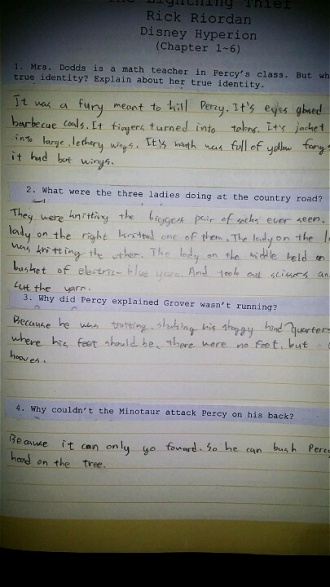 The Lightning Thief
Rick Riordan
Disney Hyperion
(Chapter 1~6)
1. Mrs. Dodds is a math teacher in Percy's class. But wh
true identity? Explain about her true identity.
It was a fury meant to kill Percy. It's eyes glowed
barbecue coals. It fingers turned into talons. It's jacket
into large, lethery wings. It's mouth was full of yellow fangs
it had bat wings.
2. What were the three ladies doing at the country road?
They were knitting the biggest pair of socks ever seen.
lady on the right knitted one of them. The lady on the l
was knitting the other. The lady on the middle held an
basket of electric-blue yarn. And took out scissors an
cut the yarn.
3. Why did Percy explained Grover wasn't running?
Because he was trotting, shaking his shaggy hind quarters
where his feet should be, there were no feet, but
hooves.
4. Why couldn't the Minotaur attack Percy on his back?
Because it can only go foward. So he can bush Percy
head on the tree.